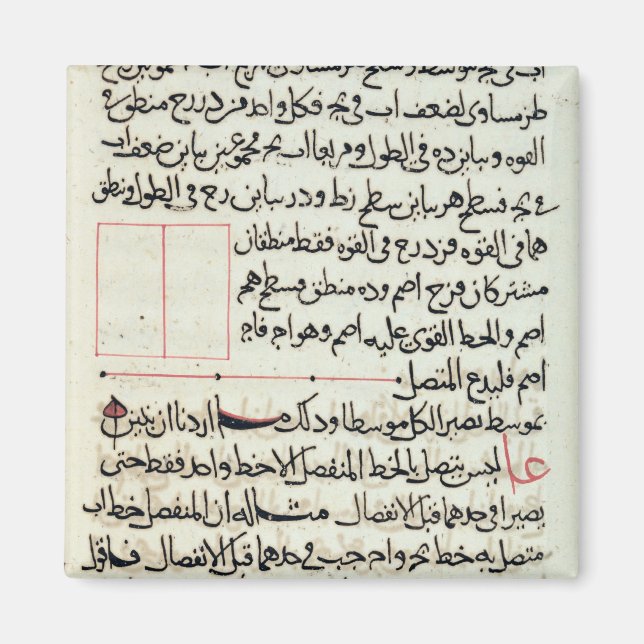 اب في بج موسط وسطح
طز مساوى لضعف اب في بج فكل واحد فز در رح منطق في
القوه و يباين ده في الطول و مربعا اب بج مجموعين يباين ضعف اب
في بج فسطح هر يباين سطح رط و در يباين رح في الطول و منطق
هما في القوه فزد رح في القوه فقط منطقان
مشتركان فرح اصم و ده منطق فسطح هم
اصم و الخط القوى عليه اصم و هو اج فاج
اصم فليدع المتصل
بموسط يصير الكل موسطا و ذلك ما اردنا ان يتبين
عا ليس يتصل بالخط المنفصل الا خط واحد فقط حتى
يصيرا في حدهما قبل الانفصال مثاله ان المنفصل خط اب
متصل به خط بج و اج جب في حدهما قبل الانفصال فاقول